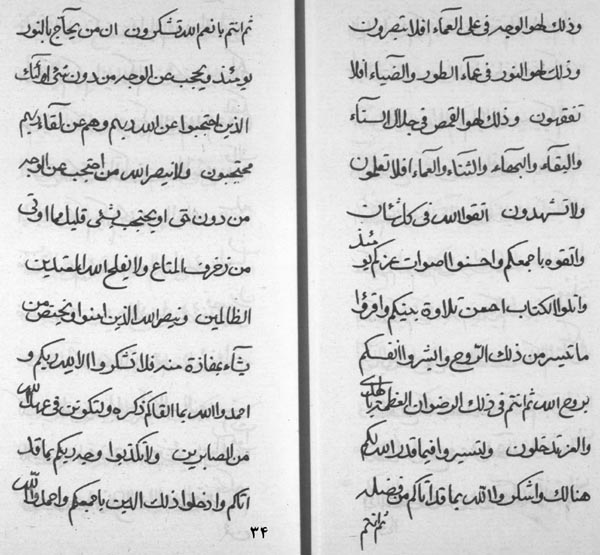 وذلك لهو الوجه في على العماء افلا تبصرون
وذلك لهو النور في عمآء الطور والضياء افلا
تفقهون وذلك لهو القمص في جلال السنآء
والبقآء والبهآء والثنآء والعمآء افلا تعلمون
ولا تشهدون اتقوا الله في كل شئان
واتقوه باجمعكم واحسنوا اصوات عزكم يومئذ
واتلوا الكتاب احسن تلاوة بينكم واقرؤا
ما تيسر من ذلك الرّوح وابشروا انفسكم
بروح الله ثم انتم في ذلك الرضوان العظمة
والعز تدخلون ولتسيروا فيما قدر الله لكم
هنالك واشكروا الله بما قد اتاكم من فضله
ثم انتم
ثم انتم بانعم الله تشكرون ان من يحآج بالنور
يومئذ ويحجب عن الوجه من دون شئ اولئك
الذين احتجبوا عن الله ربهم وهم عن لقاء ربهم
محتجبون ولا ينصر الله من احتجب عن الوجه
من دون شئ او يحتجب بشئ قليل مما اوتي
من زخرف المتاع ولا يفلح الله المفسدين
الظالمين وينصر الله الذين امنوا ويختص من
يشآء بمفازة منه فلا تشكروا الا لله ربكم و
احمدوا الله بما القاكم ذكره ولتكونن في عهد الله
من الصابرين ولا تكذبوا وجه ربكم بما قد
اتاكم وادخلوا ذلك الدين باجمعكم واحمدوا الله
٣٤